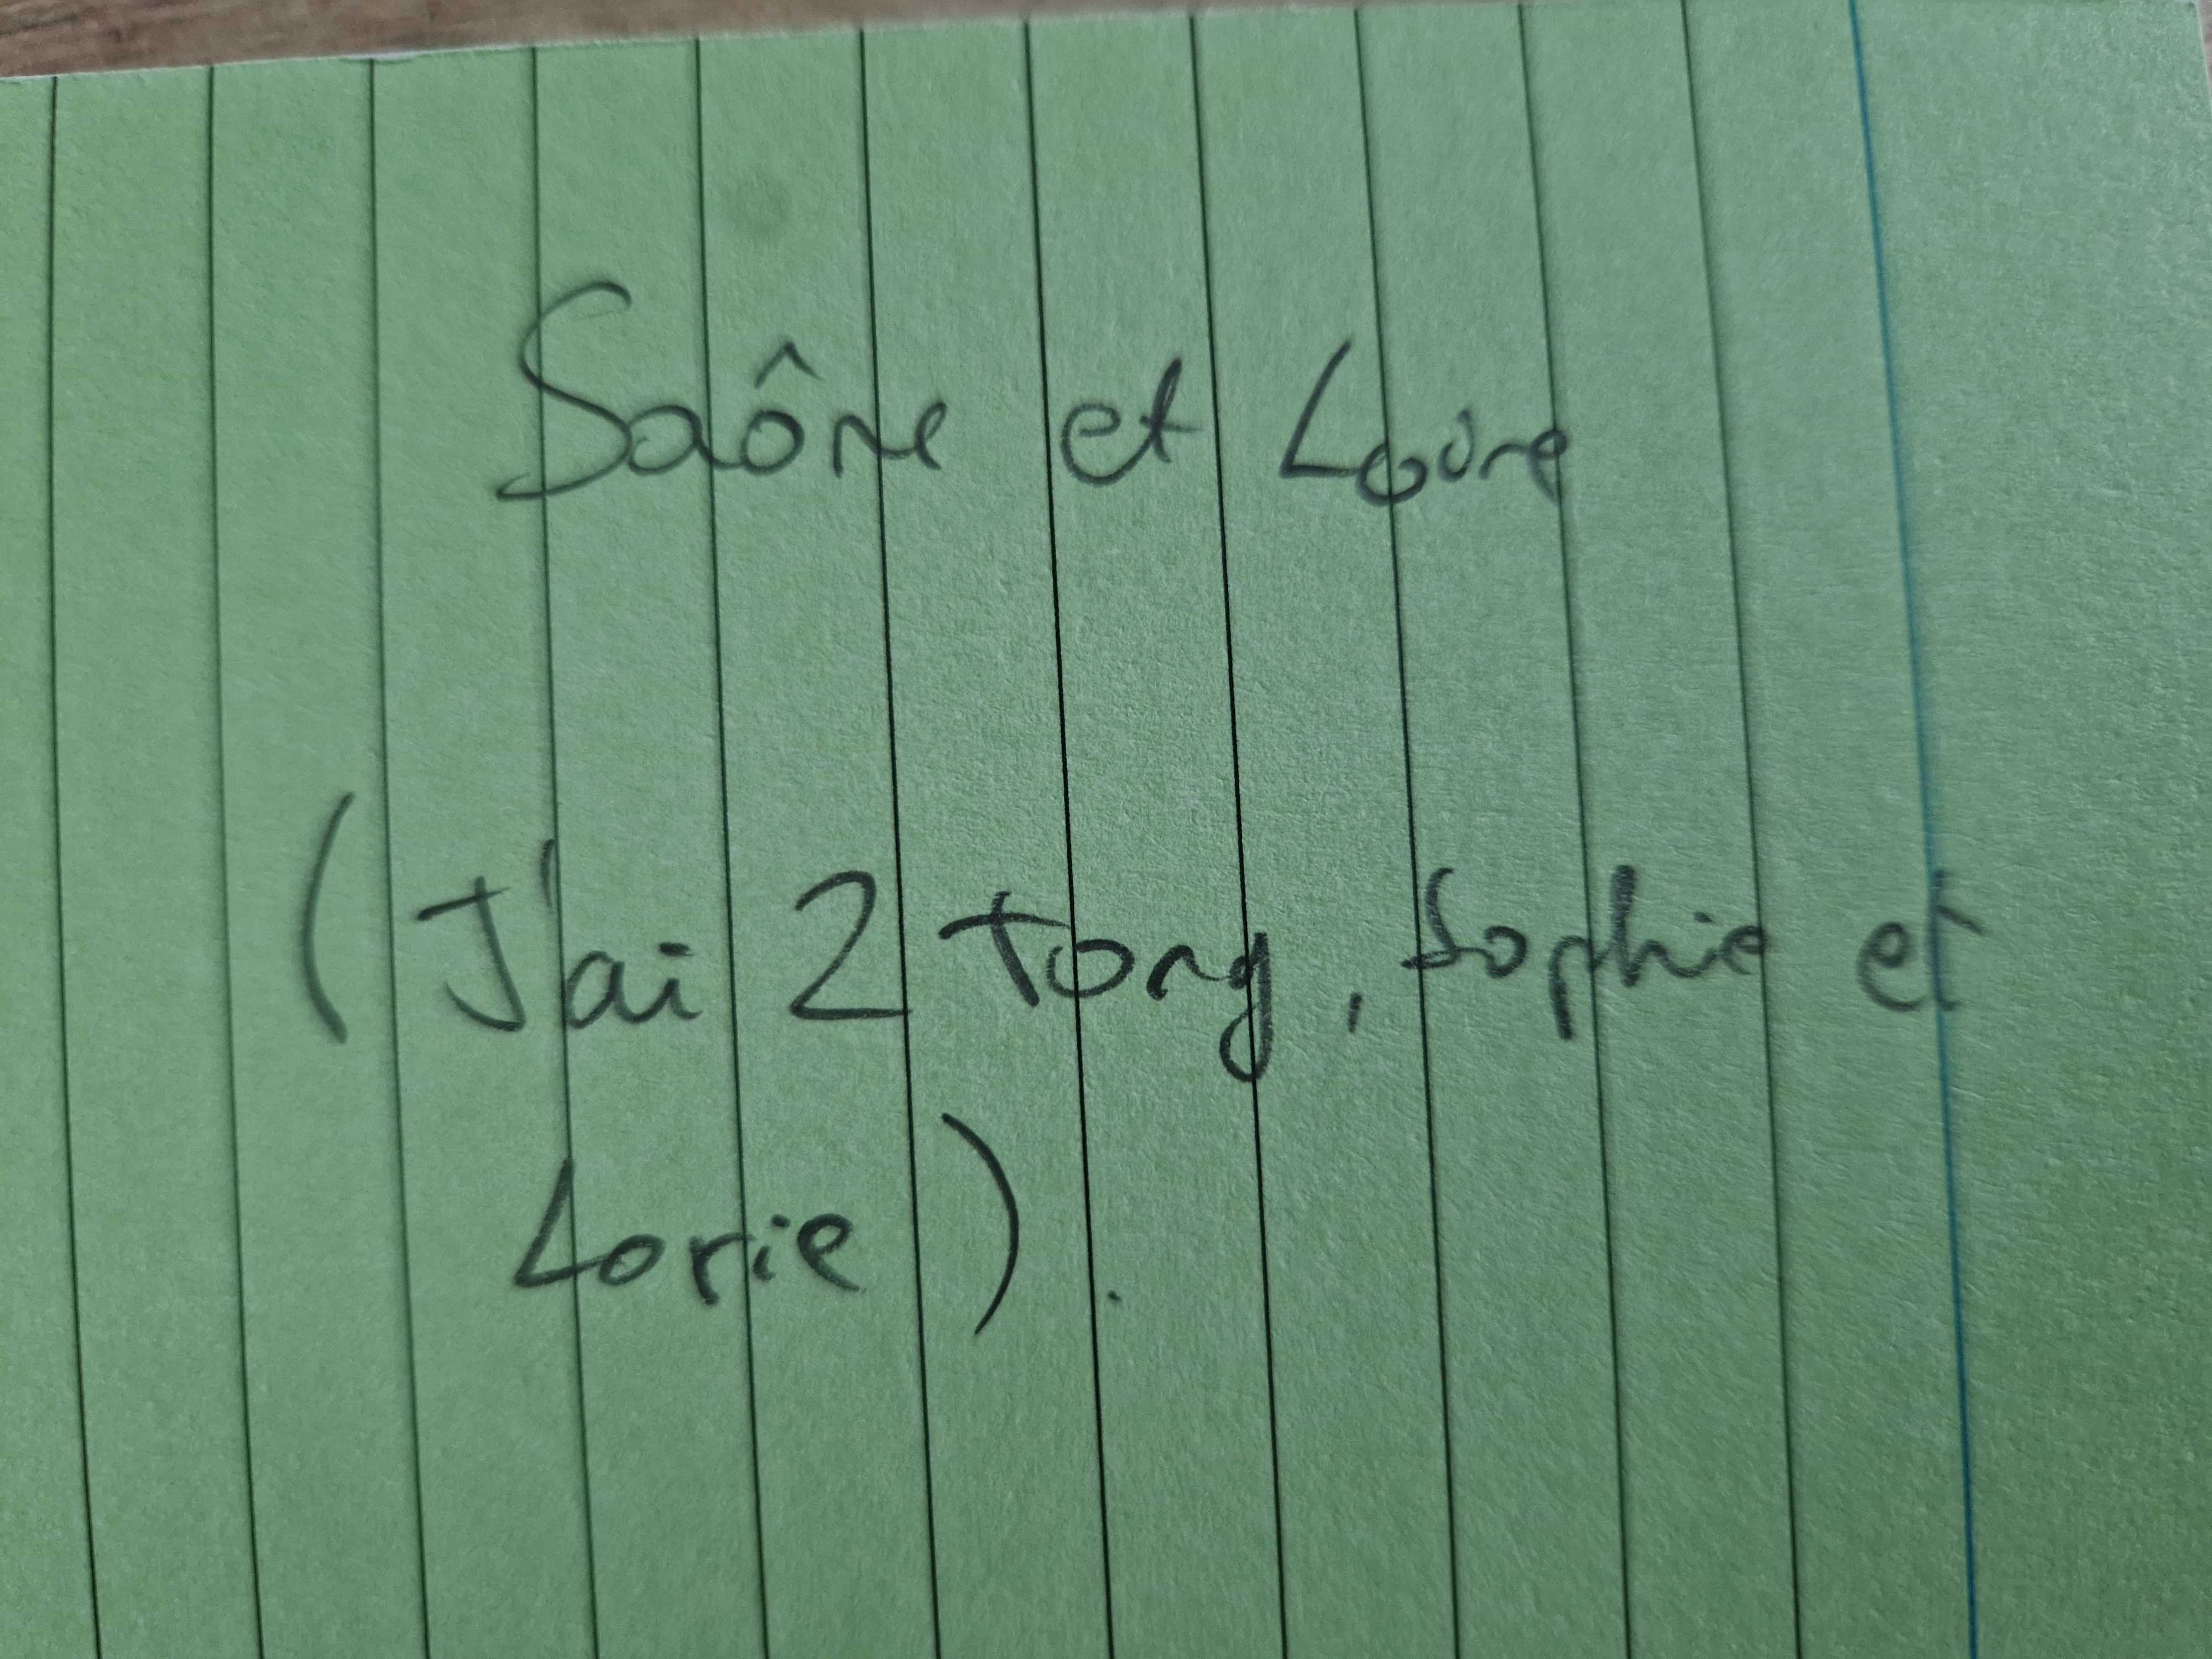 Saône et Loire
(J'ai 2 tong, Sophie et
Lorie).